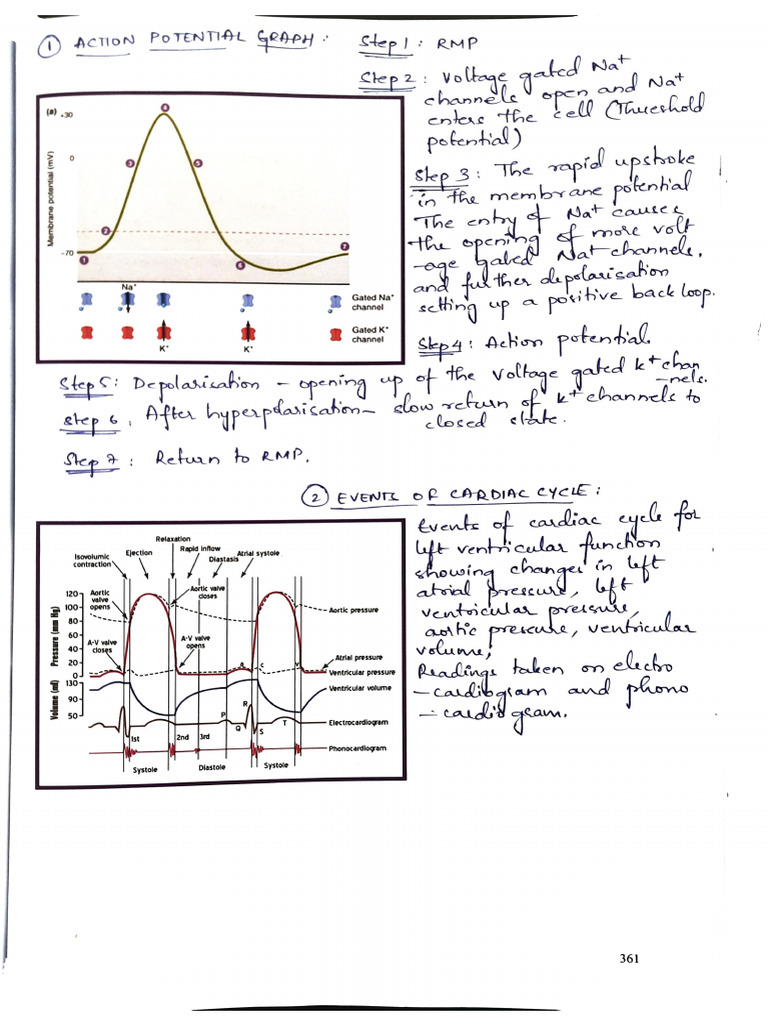 ① ACTION POTENTIAL GRAPH:
Step 1: RMP
Step 2: Voltage gated Na+
channels open and Na+
enters the cell (Threshold
potential)
Step 3: The rapid upstroke
in the membrane potential
The entry of Na+ causes
the opening of more volt
-age gated Na+ channels.
and further depolarisation
setting up a positive back loop.
Step 4: Action potential.
(a)
+30
0
-70
Membrane potential (mV)
1
2
3
4
5
6
7
Na+
Gated Na+
channel
Gated K+
channel
K+
K+
Step 5: Depolarisation - opening up of the voltage gated K+ chan
-nels.
Step 6: After hyperpolarisation - slow return of K+ channels to
closed state.
Step 7: Return to RMP.
② EVENTS OF CARDIAC CYCLE:
Isovolumic
contraction
Ejection
Relaxation
Rapid inflow
Diastasis
Atrial systole
Aortic
valve
opens
Aortic valve
closes
A-V valve
closes
A-V valve
opens
Pressure (mm Hg)
120
100
80
60
40
20
0
Volume (ml)
130
90
50
a
c
v
Aortic pressure
Atrial pressure
Ventricular pressure
Ventricular volume
Electrocardiogram
Phonocardiogram
P
Q
R
S
T
1st
2nd
3rd
Systole
Diastole
Systole
Events of cardiac cycle for
left ventricular function
showing changes in left
atrial pressure, left
ventricular pressure,
aortic pressure, ventricular
volume,
Readings taken on electro
-cardiogram and phono
-cardiogram.
361